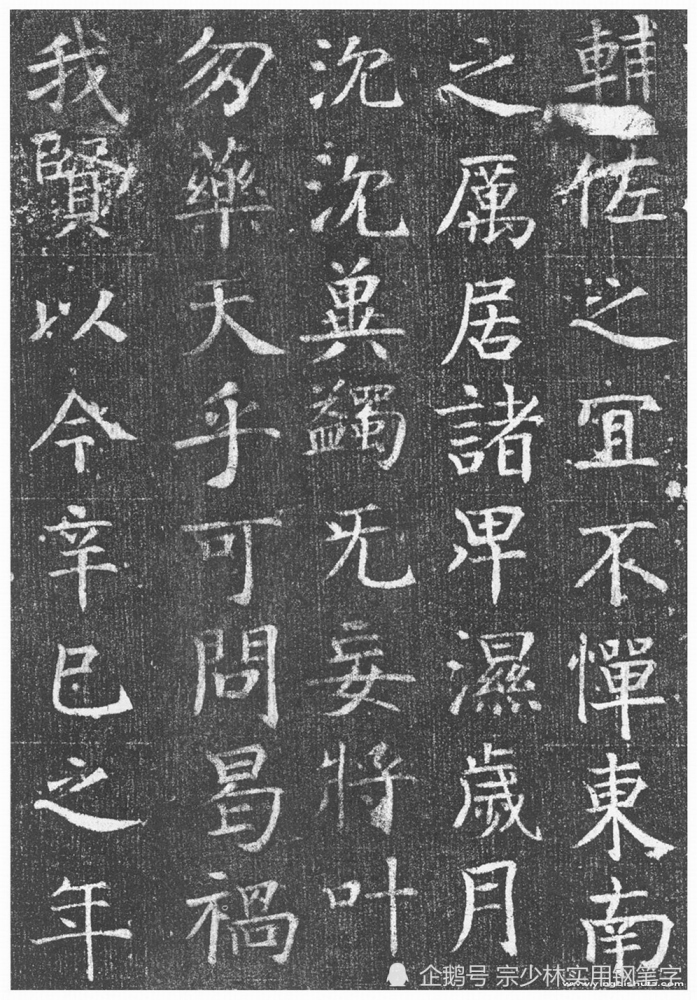 輔佐之宜不憚東南
之厲居諸卑濕歲月
沈沈冀蠲无妄將叶
勿藥天乎可問曷禍
我賢以今辛巳之年
企鹅号 宗少林实用钢笔字